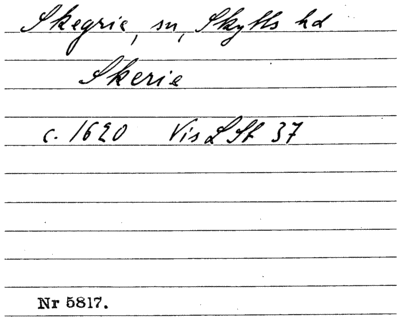 Skegrie, sn, Skytts hd
Skerie
c. 1620 Vis L St 37
Nr 5817.